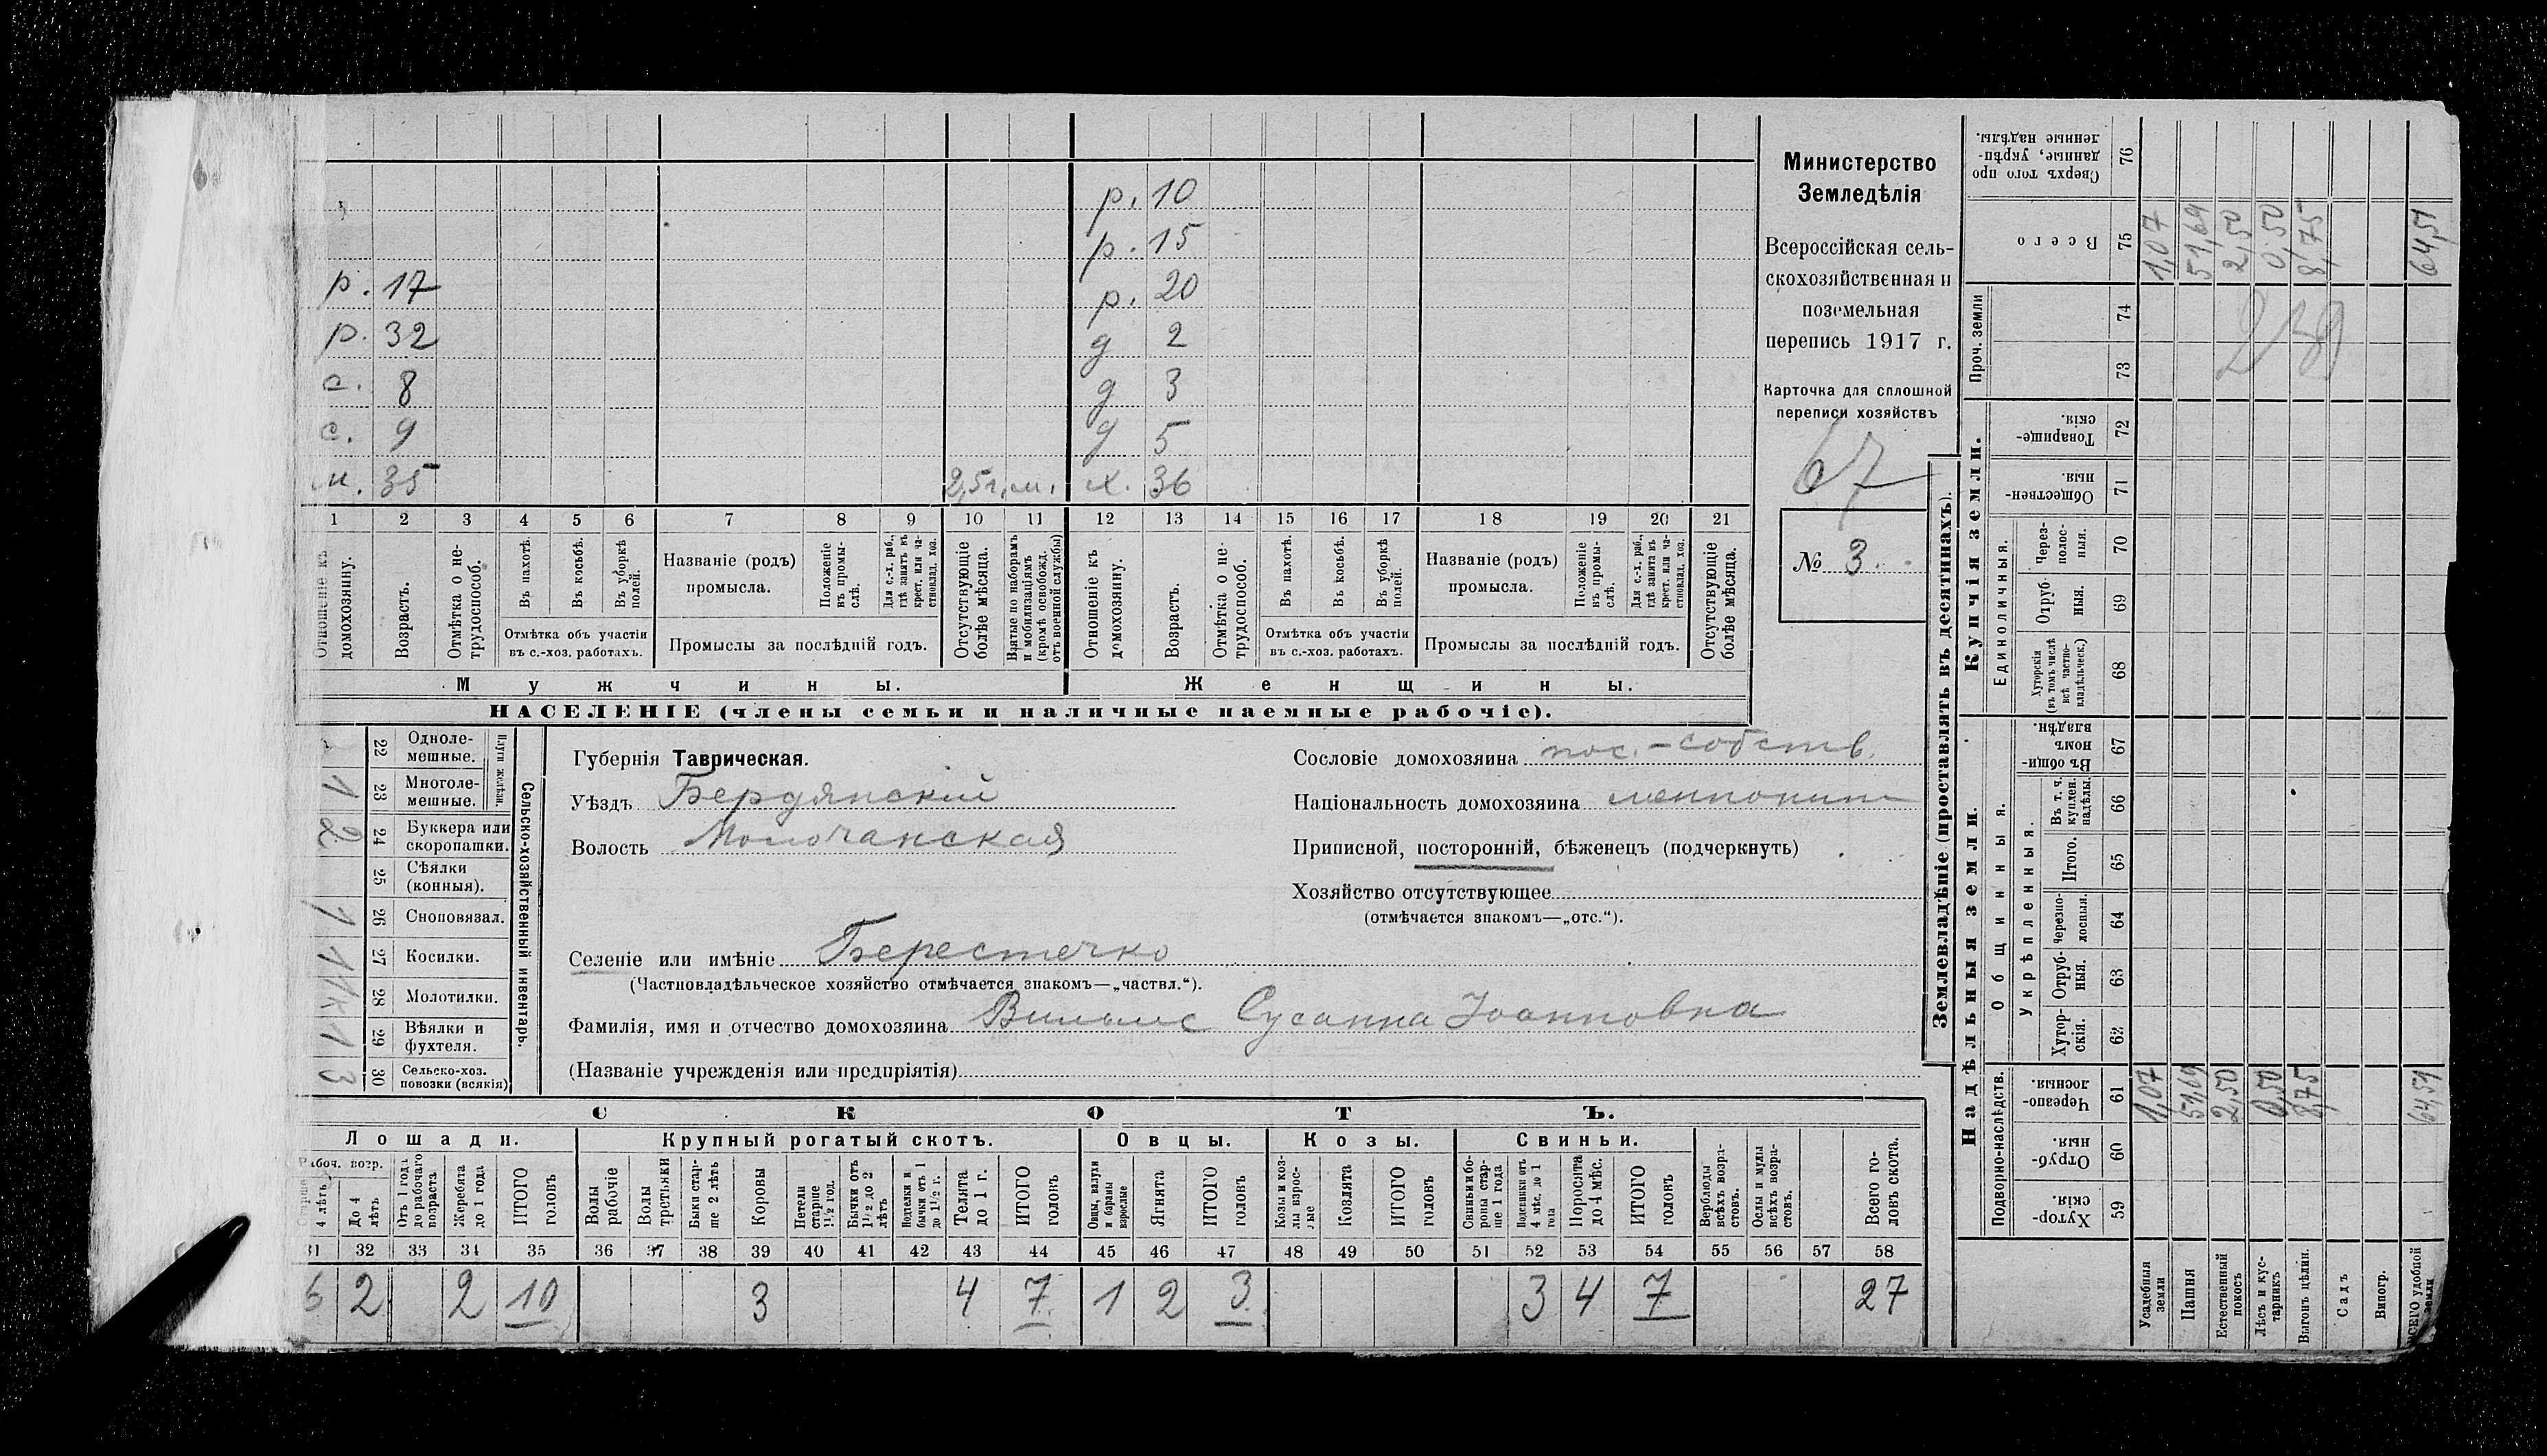 р. 10
р. 15
р. 17 р. 20
р. 32 д 2
с. 8 д 3
с. 9 д 5
м. 35 2,5 г. м. х. 36
1 2 3 4 5 6 7 8 9 10 11 12 13 14 15 16 17 18 19 20 21
Отношеніе къ домохозяину.
Возрастъ.
Отмѣтка о нетрудоспособ.
Въ пахотѣ.
Въ косьбѣ.
Въ уборкѣ полей.
Отмѣтка объ участіи въ с.-хоз. работахъ.
Названіе (родъ) промысла.
Положеніе въ промыслѣ.
Для с.-х. раб., гдѣ занятъ въ крест. или частновлад. хоз.
Промыслы за послѣдній годъ.
Отсутствующіе болѣе мѣсяца.
Взятые по наборамъ и мобилизаціямъ (кромѣ освобожд. отъ военной службы)
Отношеніе къ домохозяину.
Возрастъ.
Отмѣтка о нетрудоспособ.
Въ пахотѣ.
Въ косьбѣ.
Въ уборкѣ полей.
Отмѣтка объ участіи въ с.-хоз. работахъ.
Названіе (родъ) промысла.
Положеніе въ промыслѣ.
Для с.-х. раб., гдѣ занята въ крест. или частновлад. хоз.
Промыслы за послѣдній годъ.
Отсутствующіе болѣе мѣсяца.
Мужчины. Женщины.
НАСЕЛЕНІЕ (члены семьи и наличные наемные рабочіе).
Министерство
Земледѣлія
Всероссійская сель-
скохозяйственная и
поземельная
перепись 1917 г.
Карточка для сплошной
переписи хозяйствъ
67
№ 3.
22 Одноле-мешные.
Плуги желѣзн.
1 23 Многоле-мешные.
2 24 Буккера или скоропашки.
25 Сѣялки (конныя).
1 26 Сноповязал.
1 27 Косилки.
28 Молотилки.
1 29 Вѣялки и фухтеля.
3 30 Сельско-хоз. повозки (всякія)
Сельско-хозяйственный инвентарь.
Губернія Таврическая.
Уѣздъ Бердянскій
Волость Молочанская
Сословіе домохозяина пос.-собств.
Національность домохозяина меннонит
Приписной, посторонній, бѣженецъ (подчеркнуть)
Хозяйство отсутствующее
(отмѣчается знакомъ—„отс.“).
Селеніе или имѣніе Берестечко
(Частновладѣльческое хозяйство отмѣчается знакомъ—„частвл.“).
Фамилія, имя и отчество домохозяина Вильмс Сусанна Іоанновна
(Названіе учрежденія или предпріятія)
СКОТЪ.
Лошади. Крупный рогатый скотъ. Овцы. Козы. Свиньи.
Рабоч. возр.
Старше 4 лѣтъ
До 4 лѣтъ
Отъ 1 года до рабочаго возраста
Жеребята до 1 года
ИТОГО головъ
Волы рабочіе
Волы третьяки
Быки старше 2 лѣтъ
Коровы
Нетели старше 1½ год.
Бычки отъ 1½ до 2 лѣтъ
Телята до 1 г.
ИТОГО головъ
Овцы, валухи и бараны взрослые
Ягнята
ИТОГО головъ
Козы и козлы взрослые
Козлята
ИТОГО головъ
Свиньи и бороны старше 1 года
Подсвинки отъ 4 мѣс. до 1 года
Поросята до 4 мѣс.
ИТОГО головъ
Верблюды всѣхъ возрастовъ.
Ослы и мулы всѣхъ возрастовъ.
Всего головъ скота.
31 32 33 34 35 36 37 38 39 40 41 42 43 44 45 46 47 48 49 50 51 52 53 54 55 56 57 58
6 2 2 10 3 4 7 1 2 3 3 4 7 27
Землевладѣніе (проставлять въ десятинахъ).
Надѣльныя земли. Купчія земли. Проч. земли
Подворно-наслѣдств. Общинныя. Единоличныя.
Укрѣпленныя.
Хуторскія. 59
Отрубныя. 60
Черезполосныя. 61
Хуторскія. 62
Отрубныя. 63
Черезполосныя. 64
Итого. 65
Въ т. ч. куплен. надѣлы. 66
Въ общинномъ владѣн. 67
Хуторскія (въ томъ числѣ всѣ частновладѣльческ.) 68
Отрубныя. 69
Черезполосныя. 70
Общественныя. 71
Товарищескія. 72
73
74
Всего 75
Сверхъ того проданные, укрѣпленные надѣлы. 76
Усадебныя земли 1,07 1,07
Пашня 51,69 51,69
Естественный покосъ 2,50 2,50
Лѣсъ и кустарникъ 0,50 0,50
Выгонъ цѣлин. 8,75 8,75
Садъ
Виногр.
ВСЕГО удобной земли 64,51 64,51